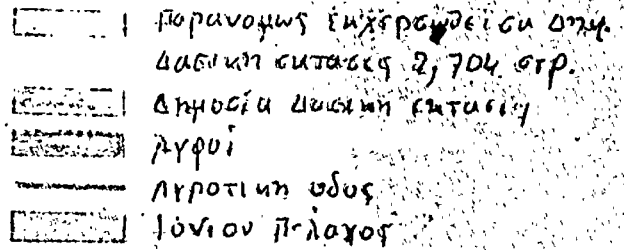 Παρανομως εκχερσωθείσα Δημ.
Δασικη εκτασις 2,704 στρ.
Δημοσία Δασικη εκτασις
Αγροί
Αγροτικη οδος
Ιόνιον Πέλαγος